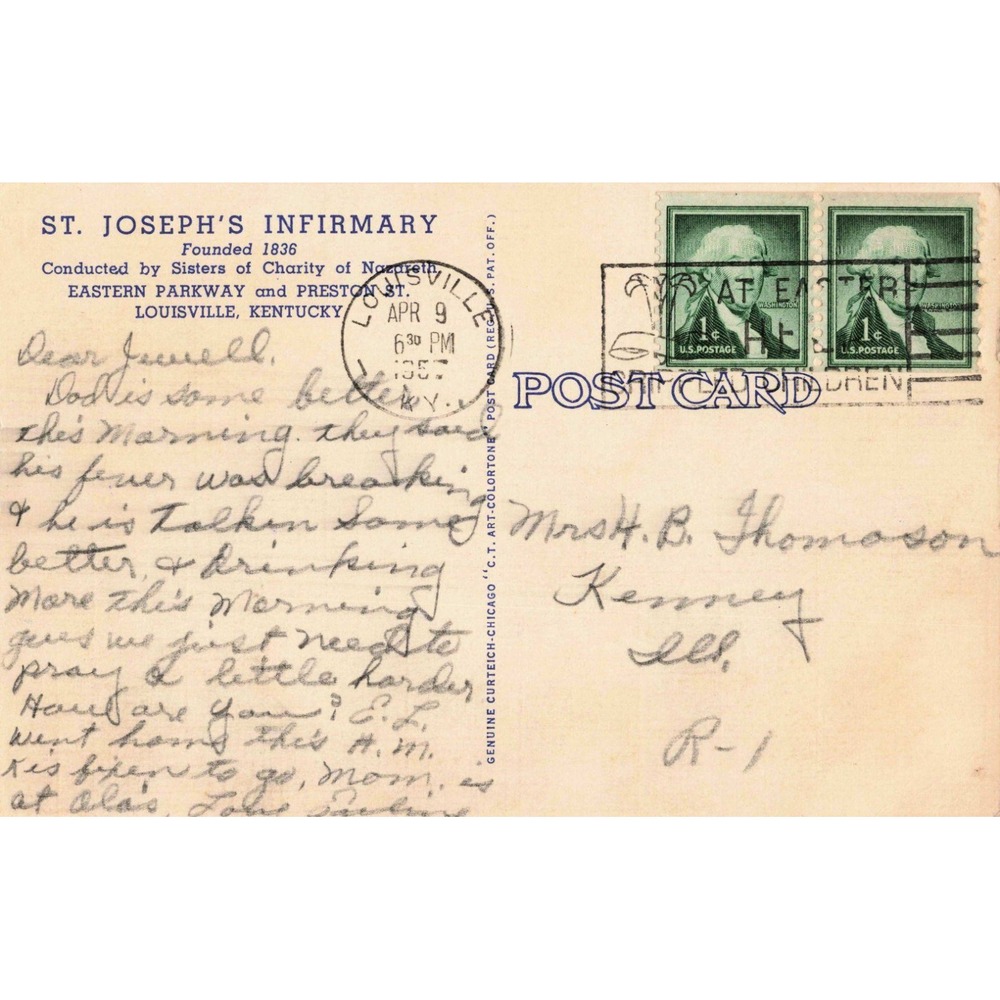 ST. JOSEPH'S INFIRMARY
Founded 1836
Conducted by Sisters of Charity of Nazareth
EASTERN PARKWAY and PRESTON ST.
LOUISVILLE, KENTUCKY
Dear Jewell.
Dad is some better
this Morning. they said
his fever was breaking
& he is Talken Some
better, & Drinking
More this Morning
gues we just Need to
pray a little harder
How are you? E.L.
went home this A.M.
fixen to go, Mom. is
at Ola's, Love
GENUINE CURTEICH-CHICAGO "C.T. ART-COLORTONE" POST CARD (REG. U.S. PAT. OFF.)
LOUISVILLE
APR 9
6 30 PM
KY.
1¢
WASHINGTON
U.S. POSTAGE
1¢
WASHINGTON
U.S. POSTAGE
AT EASTER
HELP
CRIPPLED CHILDREN
POST CARD
Mrs H. B. Thomason
Kenney
Ill.
R-1